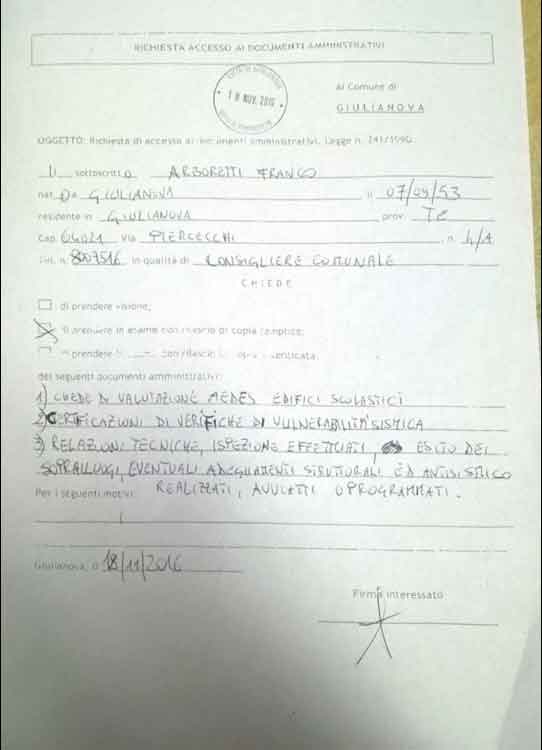 RICHIESTA ACCESSO AI DOCUMENTI AMMINISTRATIVI
18 NOV. 2016
Al Comune di
GIULIANOVA
OGGETTO: Richiesta di accesso ai documenti amministrativi. Legge n. 241/1990.
Il sottoscritto ARBORETTI FRANCO
nat o a GIULIANOVA il 07/09/53
residente in GIULIANOVA prov. TE
Cap. 64021 Via PIERCECCHI, n. 4/A
n. 8007516 in qualità di CONSIGLIERE COMUNALE
CHIEDE
di prendere visione;
di prendere in esame con rilascio di copia semplice;
di prendere con rilascio copia autenticata;
dei seguenti documenti amministrativi:
1) CHEDE DI VALUTAZIONE AEDES EDIFICI SCOLASTICI
2) CERTIFICAZIONI DI VERIFICHE DI VULNERABILITA' SISMICA
3) RELAZIONI TECNICHE, ISPEZIONE EFFETTUATI, ESITO DEI
SOPRALLUOGI, EVENTUALI ADEGUAMENTI STRUTTURALI ED ANTISISMICO
Per i seguenti motivi: REALIZZATI, AVVIATI O PROGRAMMATI.
Giulianova, lì 18/11/2016
Firma interessato